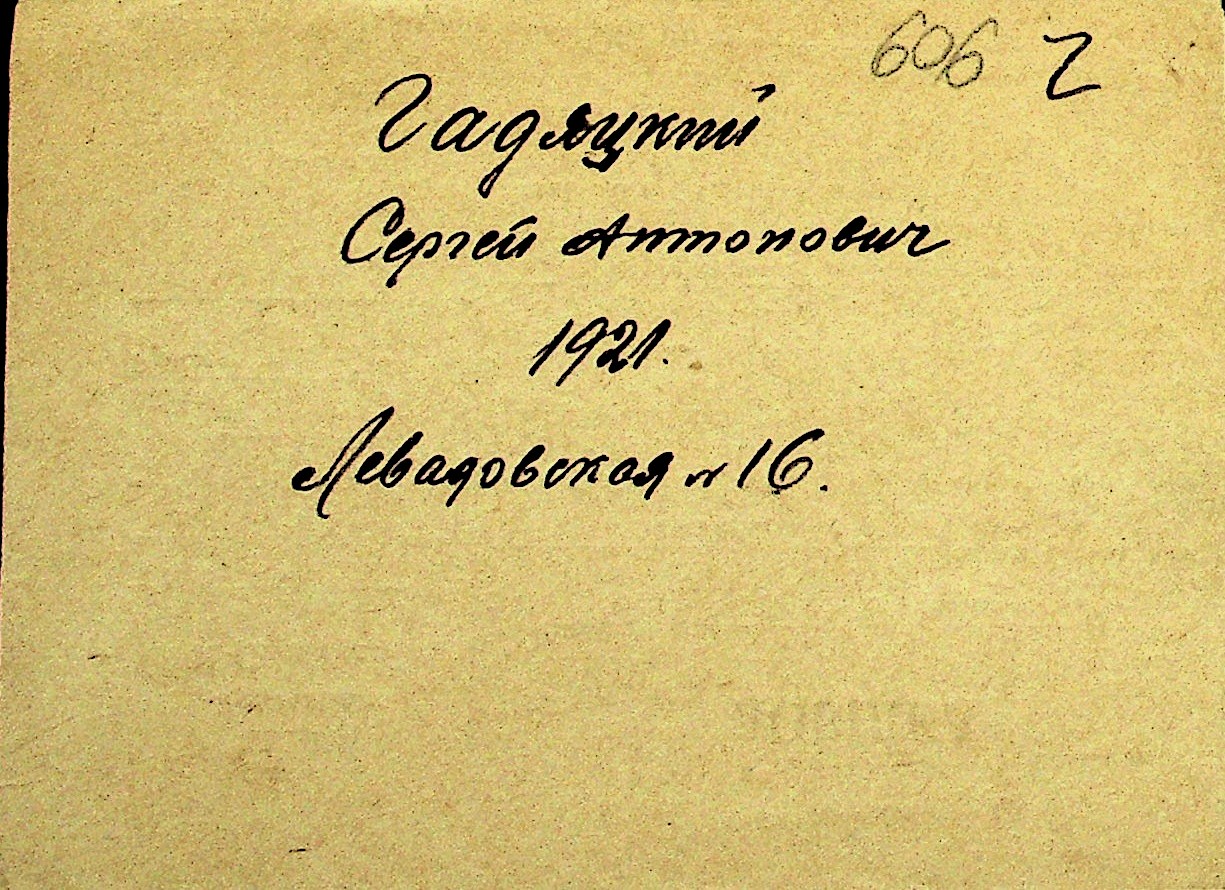 606 Г
Гадяцкий
Сергей Антонович
1921.
Левадовская № 16.